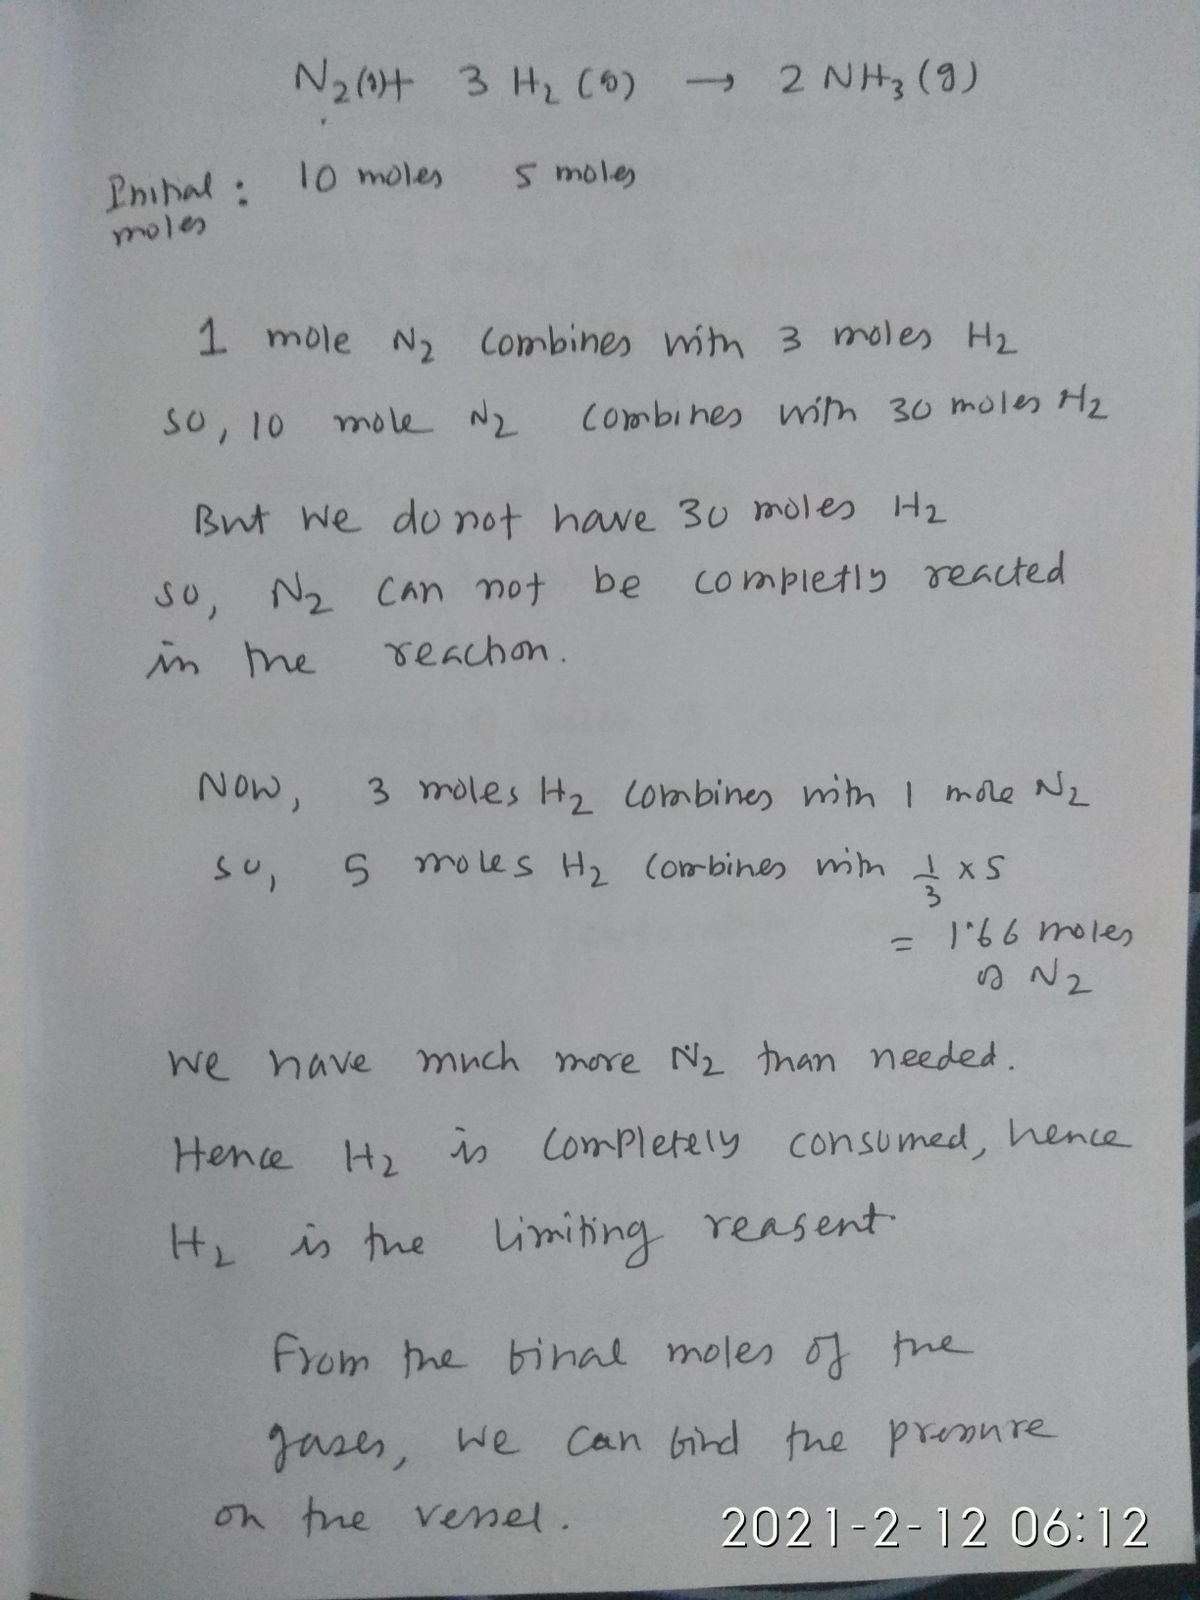 N2(g)+ 3 H2 (g) → 2 NH3 (g)
Initial : 10 moles 5 moles
moles
1 mole N2 combines with 3 moles H2
so, 10 mole N2 combines with 30 moles H2
But we do not have 30 moles H2
so, N2 can not be completly reacted
in the reaction.
Now, 3 moles H2 combines with 1 mole N2
so, 5 moles H2 combines with 1/3 x 5
= 1.66 moles
of N2
We have much more N2 than needed.
Hence H2 is completely consumed, hence
H2 is the limiting reagent.
From the final moles of the
gases, we can find the pressure
on the vessel.
2021-2-12 06:12